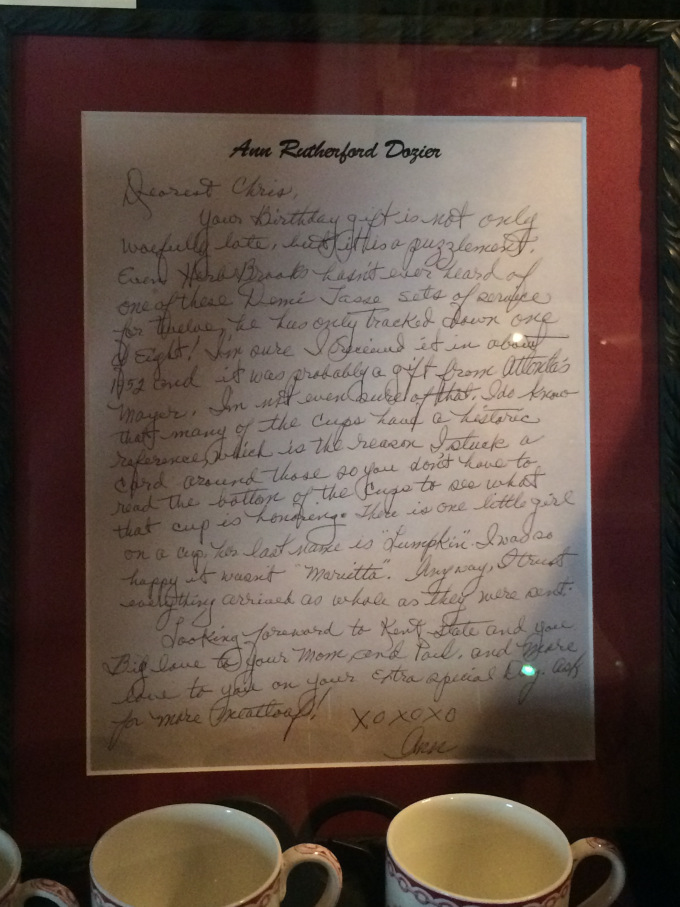 Ann Rutherford Dozier
Dearest Chris,
Your Birthday gift is not only
woefully late, but it is a puzzlement.
Even Herb Brooks hasn't ever heard of
one of these Demi Tasse sets of service
for twelve, he has only tracked down one
of Eight! I'm sure I received it in about
1952 and it was probably a gift from Atlanta's
Mayor. I'm not even sure of that. I do know
that many of the cups have a historic
reference, which is the reason I stuck a
card around those so you don't have to
read the bottom of the cups to see what
that cup is honoring. There is one little girl
on a cup, her last name is "Lumpkin". I was so
happy it wasn't "Marietta". Anyway, I trust
everything arrived as whole as they were sent.
Looking foreward to Kent State and you
Big love to your Mom and Paul, and more
love to you on your Extra special Day. Ask
for more meatloaf! XOXOXO
Ann